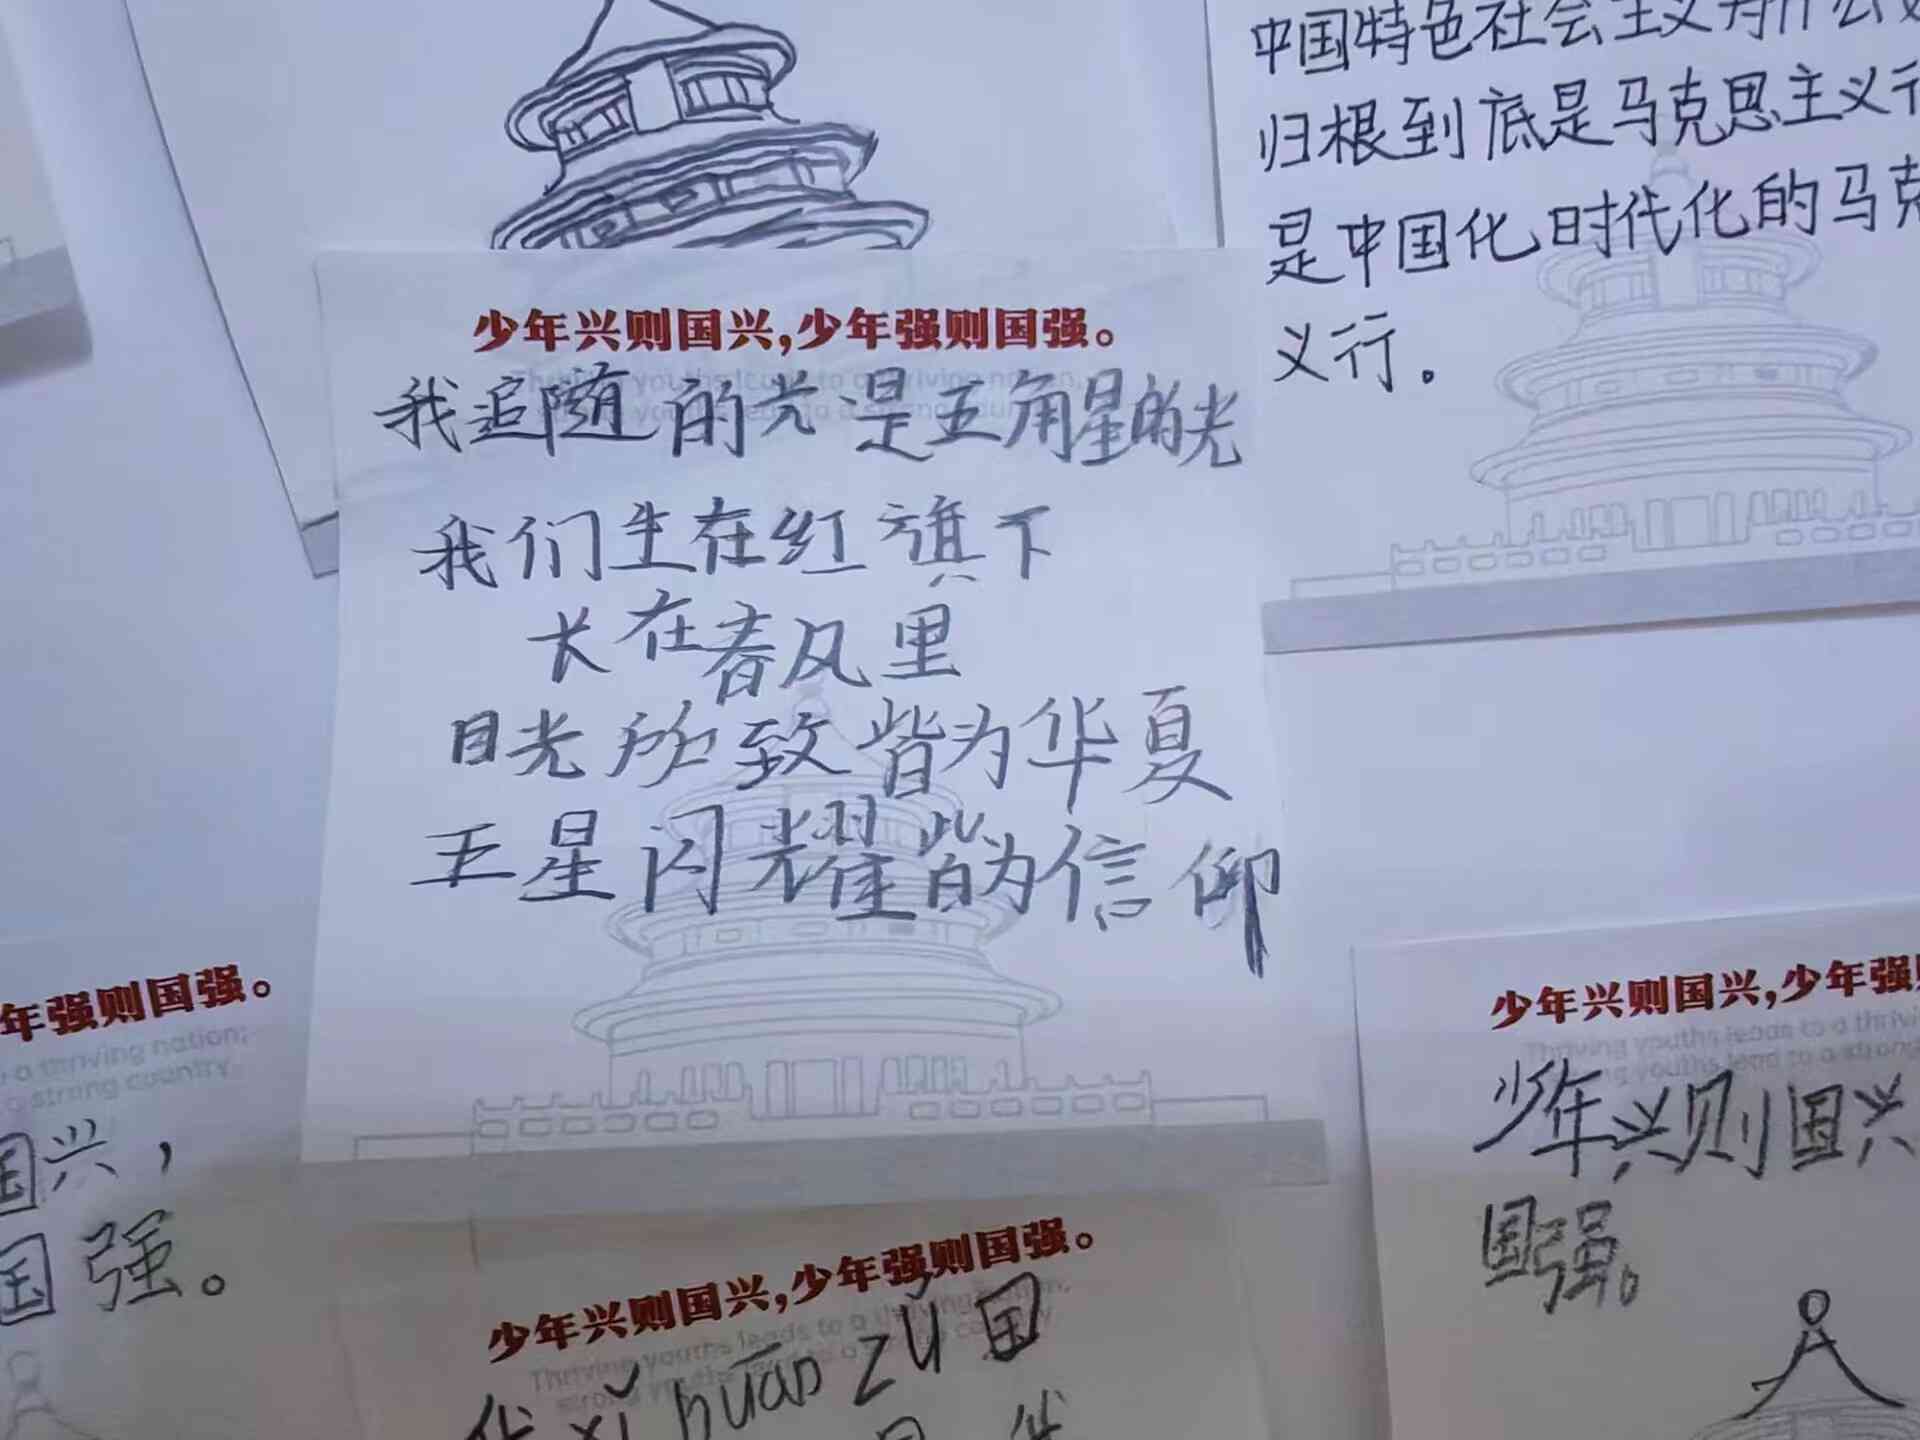 中国特色社会主义为什么好
归根到底是马克思主义行
是中国化时代化的马克
义行。
少年兴则国兴,少年强则国强。
Thriving youths leads to a thriving nation,
我追随的光是五角星的光
我们生在红旗下
长在春风里
目光所致皆为华夏
五星闪耀皆为信仰
年强则国强。
a thriving nation;
a strong country.
国兴，
国强。
少年兴则国兴,少年强则国强。
Thriving youths leads to a thriving nation,
我xǐhuānzǔ国
少年兴则国兴,少年强
Thriving youths leads to a thrivi
youths lead to a strong
少年兴则国兴
国强。